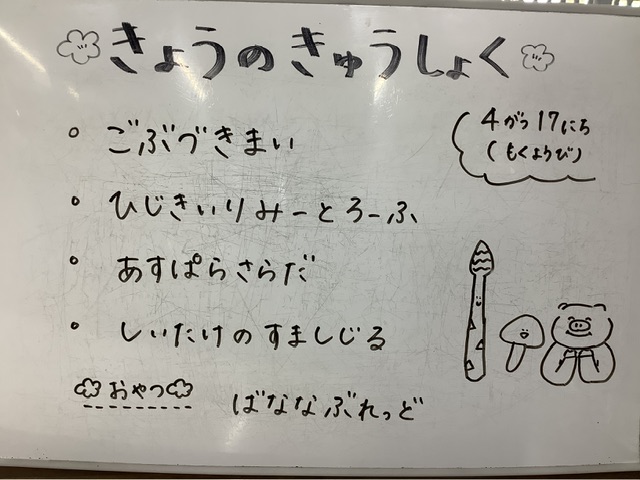 きょうのきゅうしょく
4がつ17にち
(もくようび)
。ごぶづきまい
。ひじきいりみーとろーふ
。あすぱらさらだ
。しいたけのすましじる
おやつ ばななぶれっど